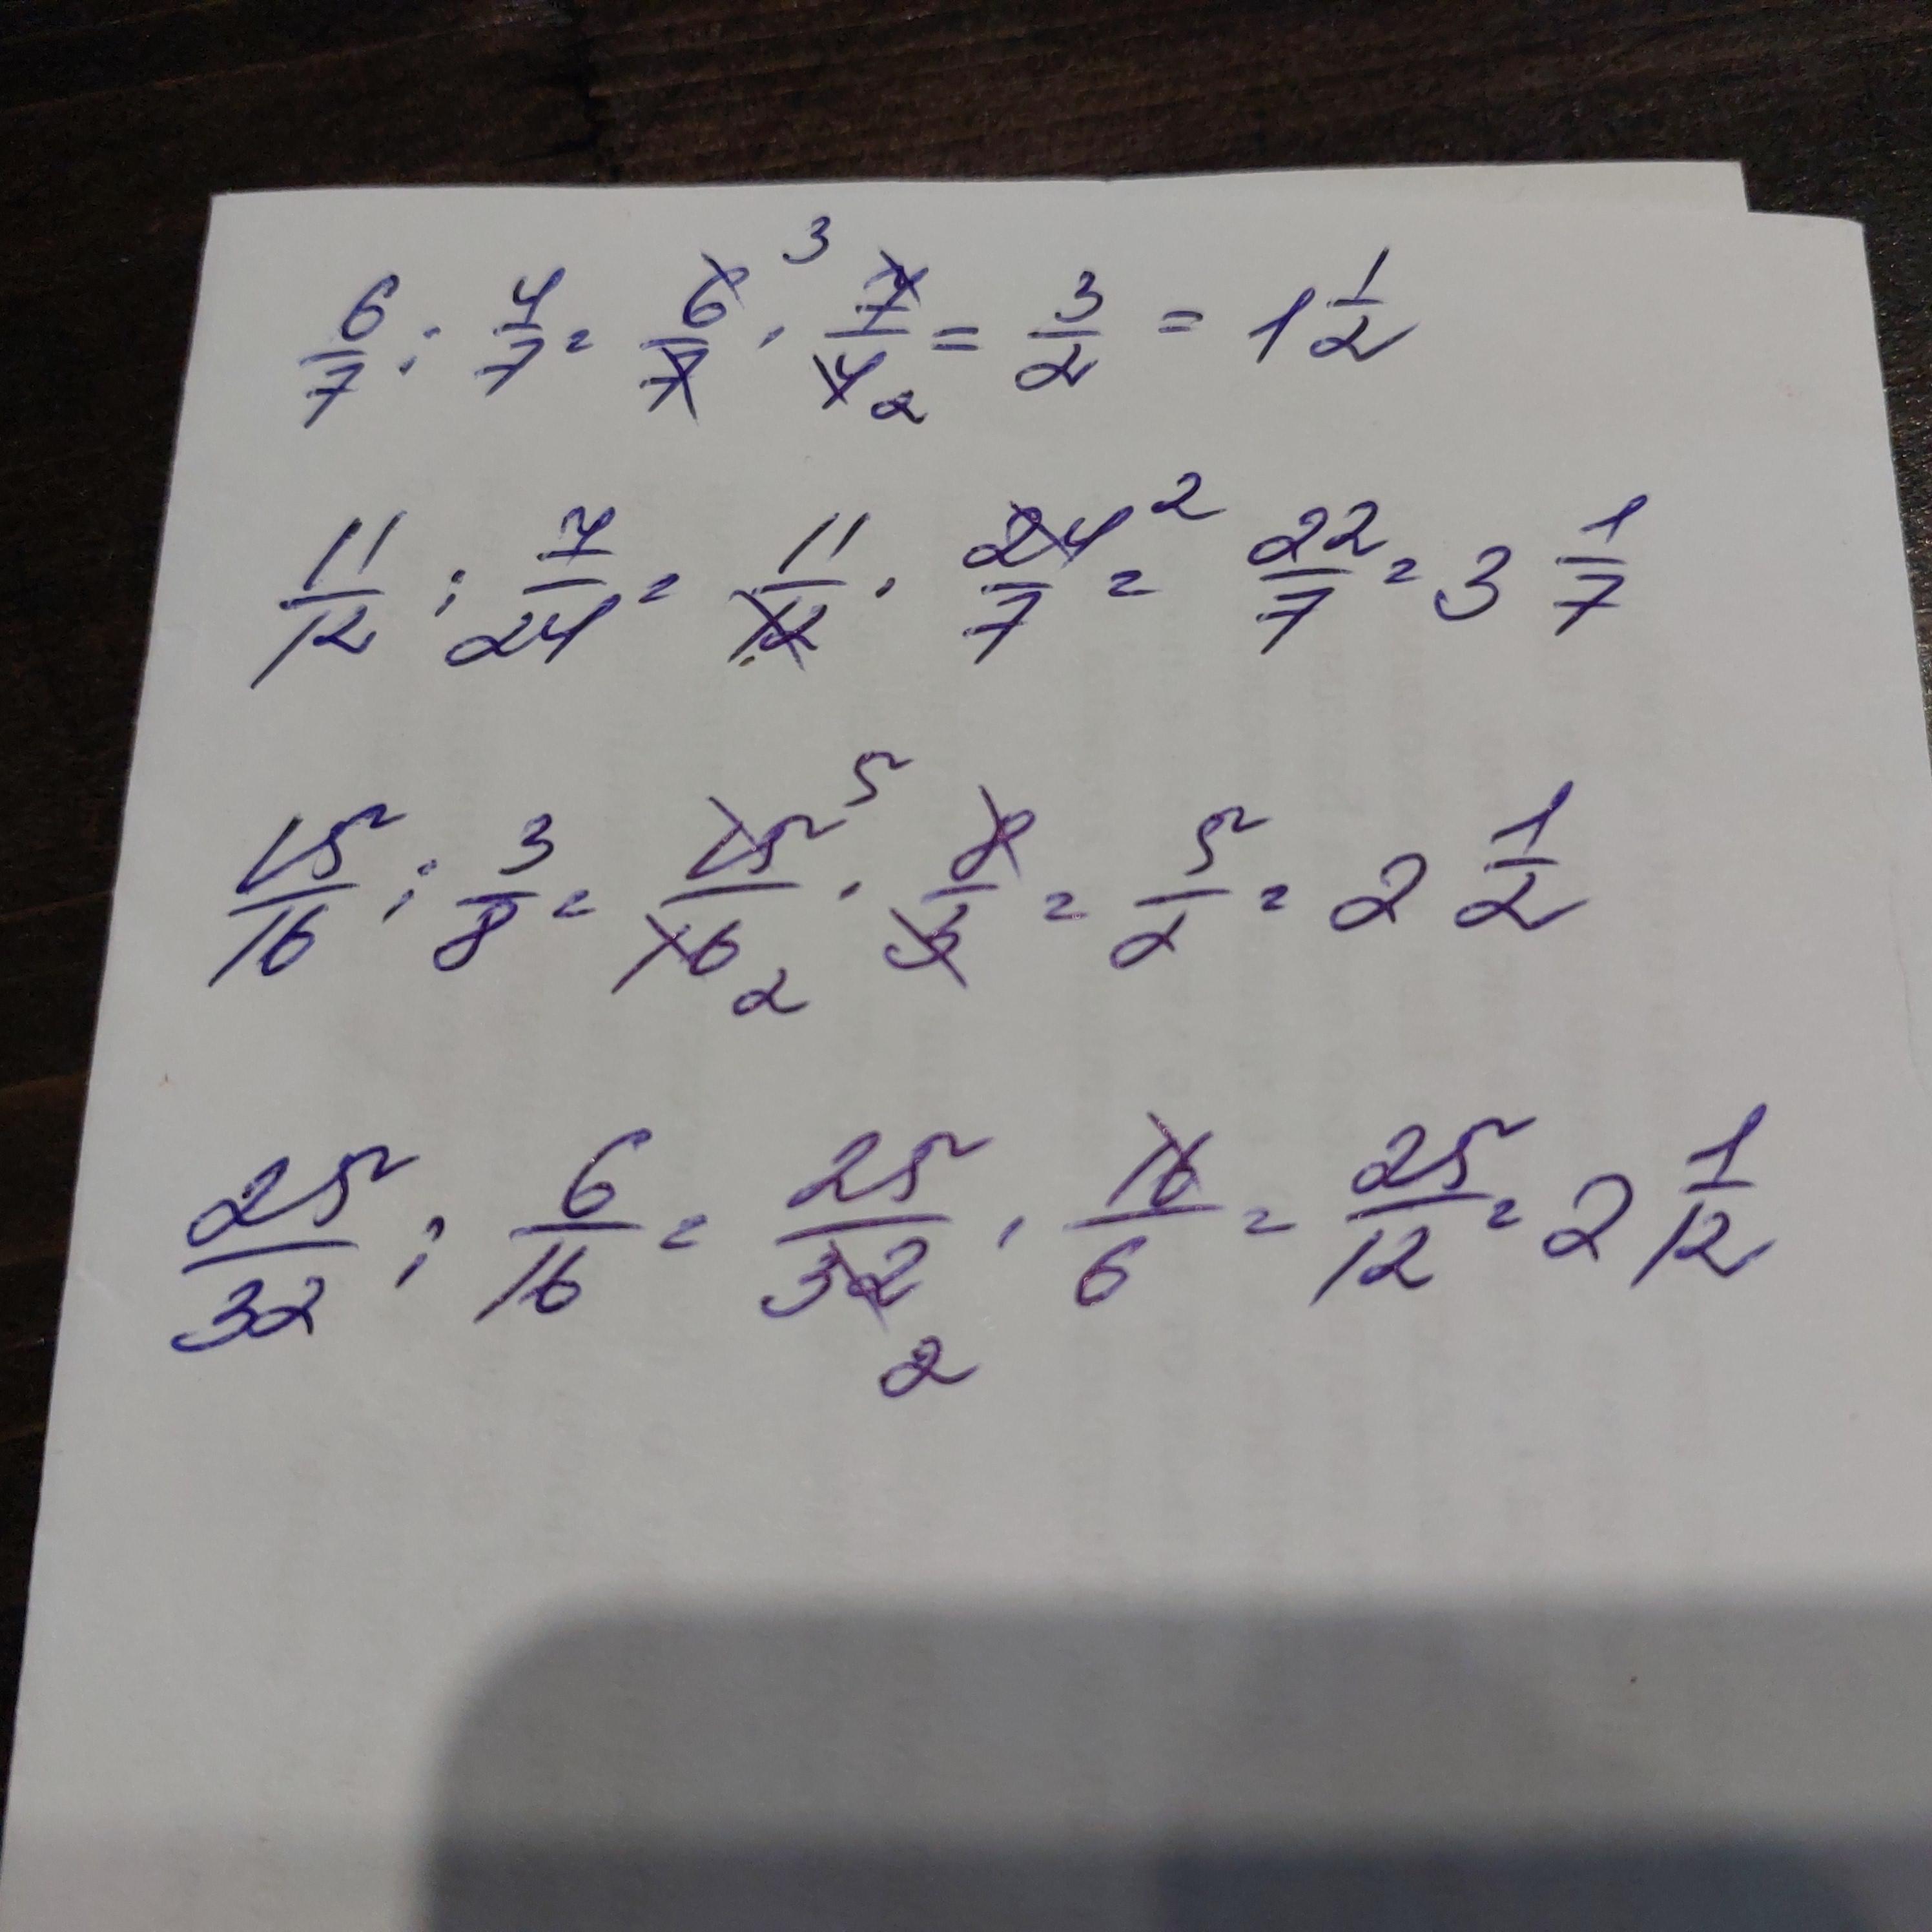 6/7 : 4/7 = 6/7 · 3 7/4 2 = 3/2 = 1 1/2
11/12 : 7/24 = 11/12 · 24/7 2 = 22/7 = 3 1/7
15/16 : 3/8 = 15/16 5 2 · 8/3 = 5/2 = 2 1/2
25/32 : 6/16 = 25/32 2 · 16/6 = 25/12 = 2 1/12